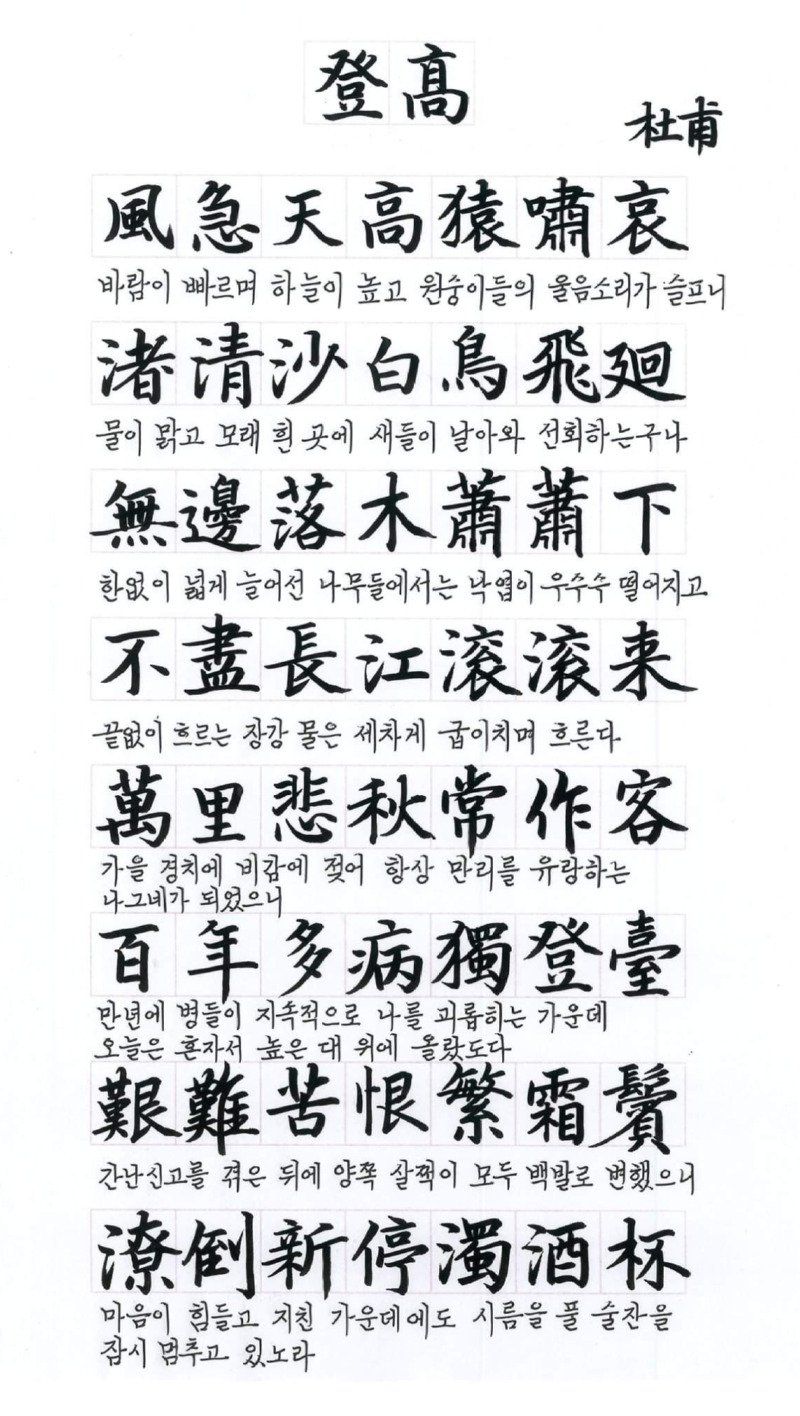 登高
杜甫
風急天高猿嘯哀
바람이 빠르며 하늘이 높고 원숭이들의 울음소리가 슬프니
渚清沙白鳥飛廻
물이 맑고 모래 흰 곳에 새들이 날아와 선회하는구나
無邊落木蕭蕭下
한없이 넓게 늘어선 나무들에서는 낙엽이 우수수 떨어지고
不盡長江滾滾来
끝없이 흐르는 장강 물은 세차게 굽이치며 흐른다
萬里悲秋常作客
가을 경치에 비감에 젖어 항상 만리를 유랑하는
나그네가 되었으니
百年多病獨登臺
만년에 병들이 지속적으로 나를 괴롭히는 가운데
오늘은 혼자서 높은 대 위에 올랐도다
艱難苦恨繁霜鬢
간난신고를 겪은 뒤에 양쪽 살쩍이 모두 백발로 변했으니
潦倒新停濁酒杯
마음이 힘들고 지친 가운데에도 시름을 풀 술잔을
잠시 멈추고 있노라